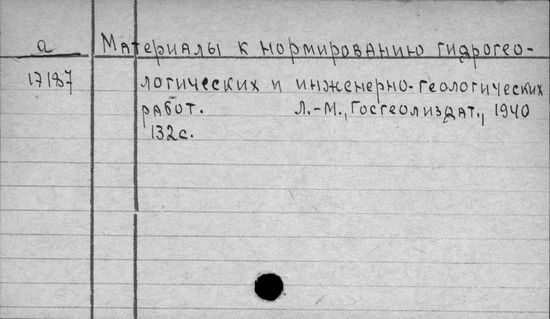 а Материалы к нормированию гидрогео-
17187 логических и инженерно-геологических
работ. Л.-М., Госгеолиздат., 1940
132с.